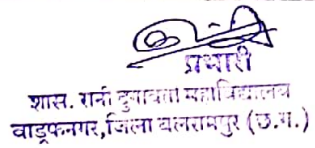 प्रभारी
शास. रानी दुर्गावती महाविद्यालय
वाड्रफनगर, जिला बलरामपुर (छ.ग.)